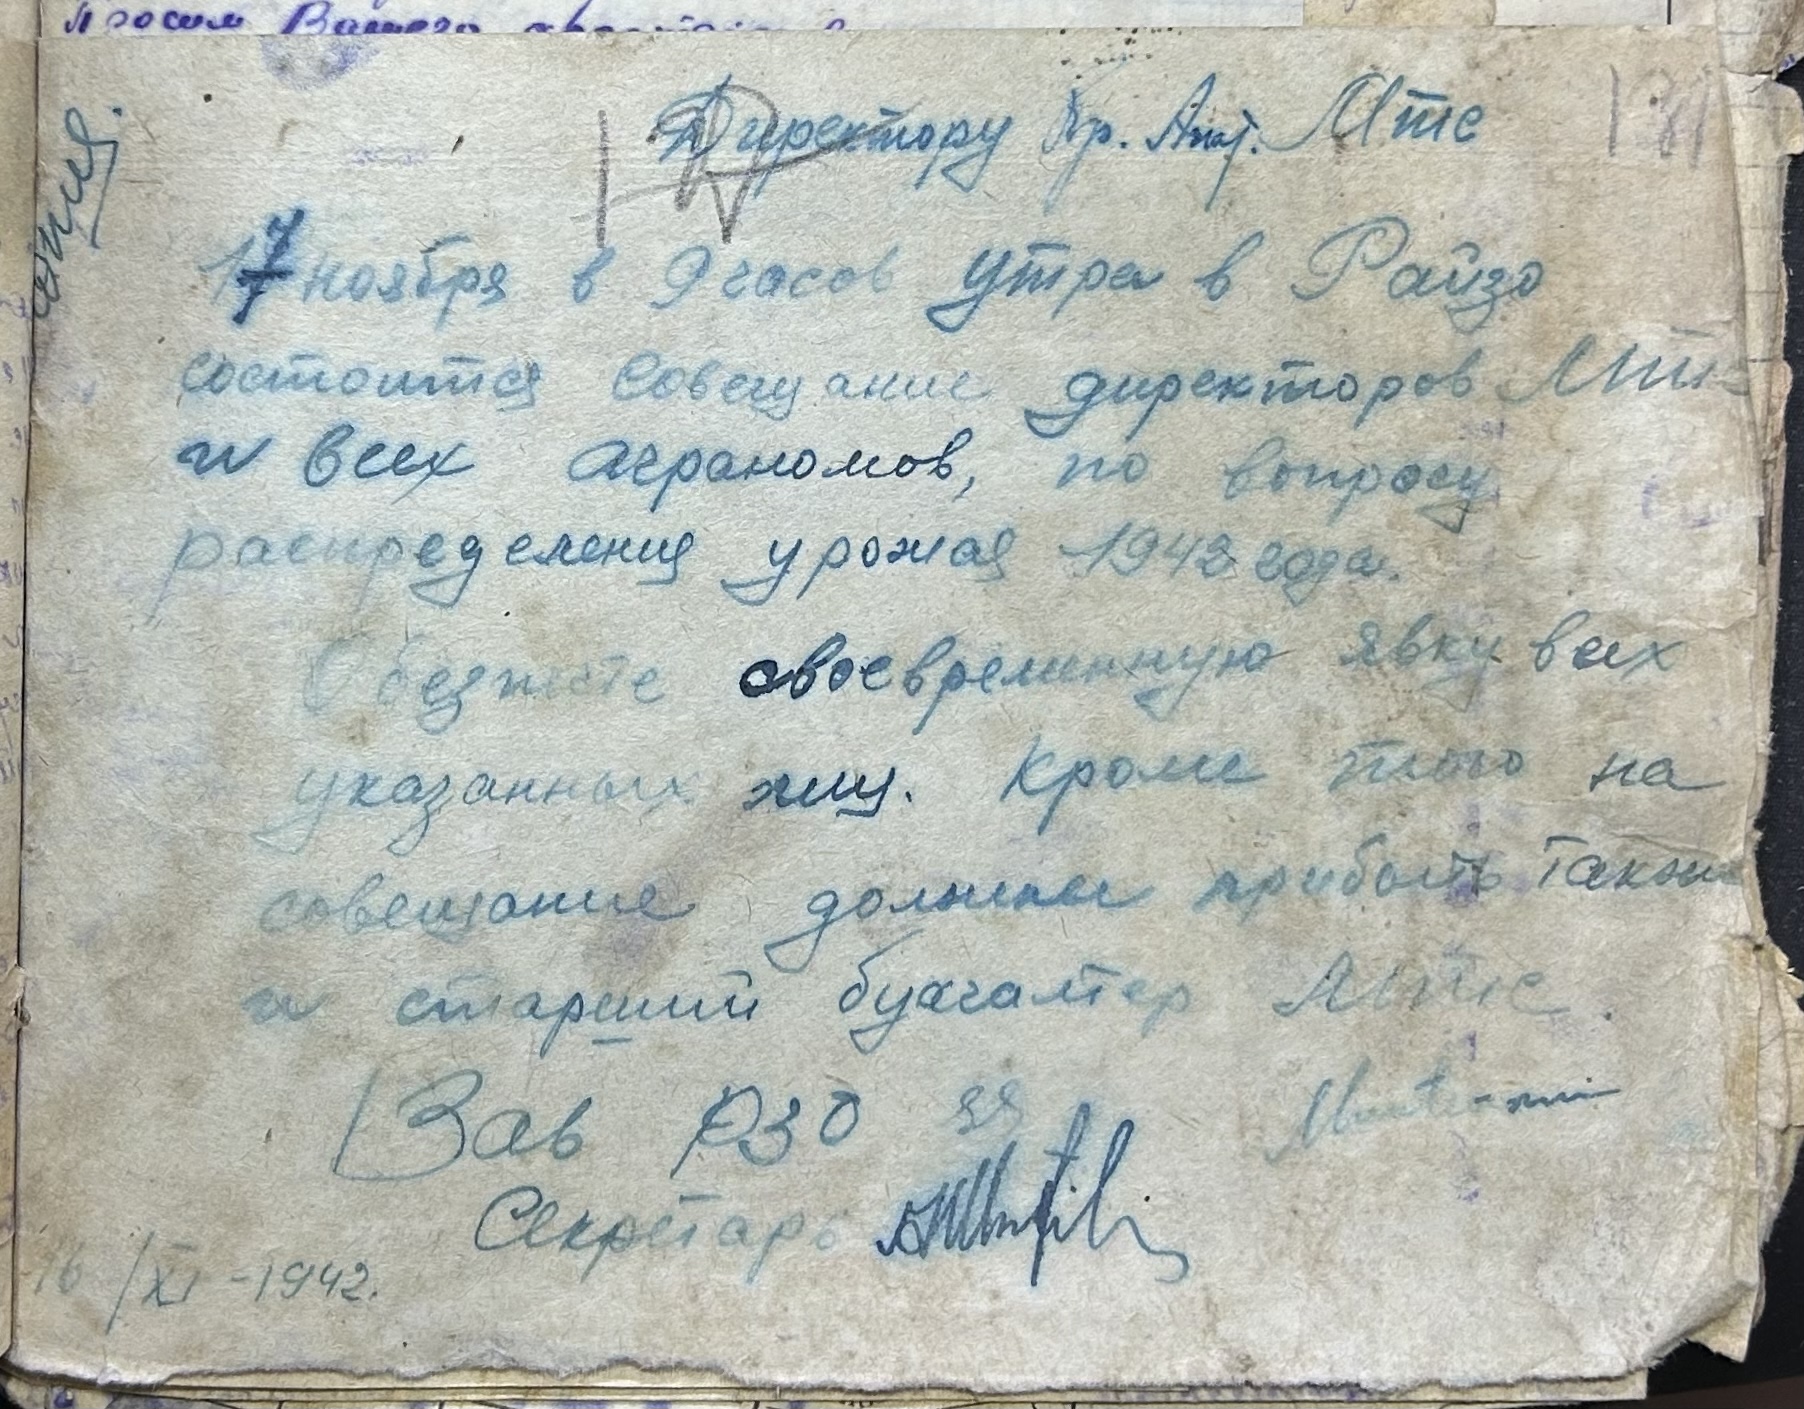 Просим Вашего
Директору Кр. Ант. Мтс
17 ноября в 9 часов утра в Райзо
состоится совещание директоров Мтс
и всех аграномов, по вопросу
распределения урожая 1942 года.
Обезпечте своевременную явку всех
указанных лиц. Кроме того на
совещание должны прибыть также
и старший бухгалтер Мтс
Зав РЗО
Секретарь
16/XI-1942.